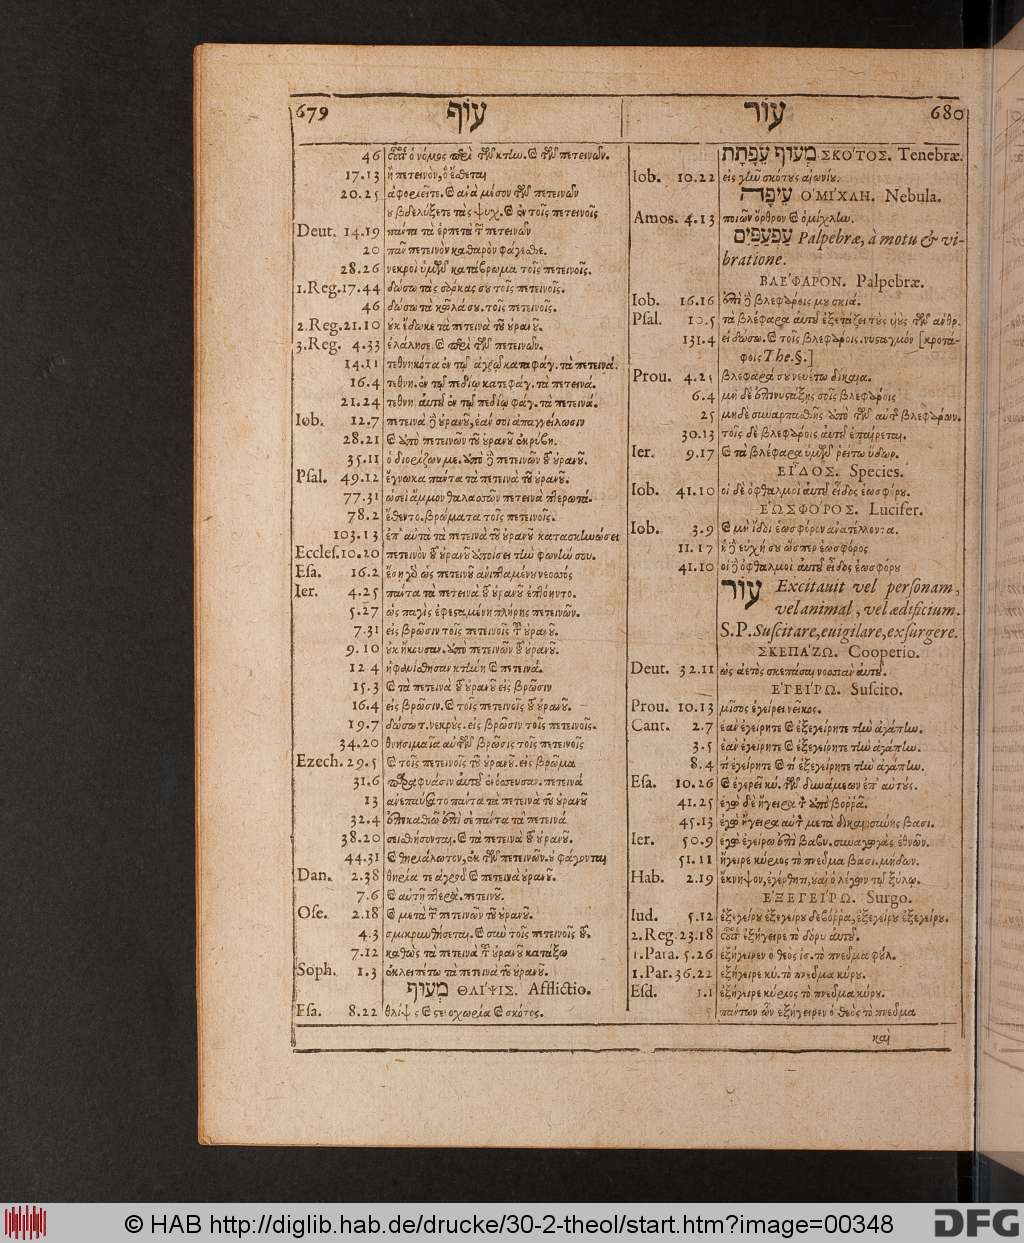 679 עוף
עור 680
46 ὁ νόμος τῶν πετεινῶν.
17.13 ἢ πετεινὸν, ὃ ἔδεται
20.25 ἀφοριεῖτε. πετεινῶν
τοῖς πετεινοῖς
Deut. 14.19 πάντα τὰ ἑρπετὰ τῶν πετεινῶν
20 πᾶν πετεινὸν καθαρὸν φάγεσθε.
28.26 νεκροὶ ὑμῶν κατάβρωμα τοῖς πετεινοῖς.
1.Reg. 17.44 δώσω τὰς σάρκας σου τοῖς πετεινοῖς.
46 δώσω τὰ κῶλά σου. τοῖς πετεινοῖς.
2.Reg. 21.10 οὐκ ἔδωκε τὰ πετεινὰ τοῦ οὐρανοῦ.
3.Reg. 4.33 ἐλάλησε. καὶ περὶ τῶν πετεινῶν.
14.11 τεθνηκότα ἐν τῷ ἀγρῷ καταφάγ. τὰ πετεινά.
16.4 τεθνη. ἐν τῷ πεδίῳ καταφάγ. τὰ πετεινά.
21.24 τεθνη. αὐτοῦ ἐν τῷ πεδίῳ φάγ. τὰ πετεινά.
Iob. 12.7 πετεινὰ οὐρανοῦ, ἐάν σοι ἀπαγγείλωσιν
28.21 καὶ ἀπὸ πετεινῶν τοῦ οὐρανοῦ ἐκρύβη.
35.11 ὁ διορίζων με. ἀπὸ πετεινῶν τοῦ οὐρανοῦ.
Psal. 49.12 ἔγνωκα πάντα τὰ πετεινὰ τοῦ οὐρανοῦ.
77.31 ὡσεὶ ἄμμον θαλασσῶν πετεινὰ πτερωτά.
78.2 ἔθεντο. βρώματα τοῖς πετεινοῖς.
103.13 ἐπ' αὐτὰ τὰ πετεινὰ τοῦ οὐρανοῦ κατασκηνώσει
Eccles. 10.20 πετεινὸν τοῦ οὐρανοῦ ἀποίσει τὴν φωνήν σου.
Esa. 16.2 ἔσῃ γὰρ ὡς πετεινοῦ ἀνιπταμένου νεοσσός
Ier. 4.25 πάντα τὰ πετεινὰ τοῦ οὐρανοῦ ἐπτόηντο.
5.27 ὡς παγὶς ἐφεσταμένη πλήρης πετεινῶν.
7.31 εἰς βρῶσιν τοῖς πετεινοῖς τοῦ οὐρανοῦ.
9.10 οὐκ ἤκουσαν. ἀπὸ πετεινῶν τοῦ οὐρανοῦ.
12 4 ἠφανίσθησαν κτήνη καὶ πετεινά.
15.3 καὶ τὰ πετεινὰ τοῦ οὐρανοῦ εἰς βρῶσιν
16.4 εἰς βρῶσιν. καὶ τοῖς πετεινοῖς τοῦ οὐρανοῦ.
19.7 δώσω τ. νεκροὺς. εἰς βρῶσιν τοῖς πετεινοῖς.
34.20 θνησιμαῖα αὐτῶν βρῶσις τοῖς πετεινοῖς
Ezech. 29.5 καὶ τοῖς πετεινοῖς τοῦ οὐρανοῦ. εἰς βρῶμα
31.6 παραφυάσιν αὐτοῦ ἐνόσσευσαν. πετεινά
13 ἀνεπαύσατο πάντα τὰ πετεινὰ τοῦ οὐρανοῦ
32.4 ἐπικαθιῶ ἐπὶ σὲ πάντα τὰ πετεινά
38.20 σεισθήσονται. καὶ τὰ πετεινὰ τοῦ οὐρανοῦ.
44.31 καὶ θηριάλωτον, ἐκ τῶν πετεινῶν. οὐ φάγονται
Dan. 2.38 θηρία τε ἀγροῦ καὶ πετεινὰ οὐρανοῦ.
7.6 καὶ αὐτῇ πτερὰ. πετεινοῦ.
Ose. 2.18 καὶ μετὰ τῶν πετεινῶν τοῦ οὐρανοῦ.
4.3 σμικρυνθήσεται. καὶ σὺν τοῖς πετεινοῖς τοῦ.
7.12 καθὼς τὰ πετεινὰ τοῦ οὐρανοῦ κατάξω
Soph. 1.3 ἐκλειπέτω τὰ πετεινὰ τοῦ οὐρανοῦ.
מְעוּף ΘΛΙ͂ΨΙΣ. Afflictio.
Esa. 8.22 θλίψις καὶ στενοχωρία καὶ σκότος.
מְעוּף עֵפָתָת ΣΚΟ'ΤΟΣ. Tenebræ.
Iob. 10.22 εἰς γῆν σκότους αἰωνίου.
עֵיפָה Ο'ΜΙ'ΧΛΗ. Nebula.
Amos. 4.13 ποιῶν ὄρθρον καὶ ὁμίχλην.
עַפְעַפַּיִם Palpebræ, à motu & vi-
bratione.
ΒΛΕ'ΦΑΡΟΝ. Palpebræ.
Iob. 16.16 ἐπὶ βλεφάροις μου σκιά.
Psal. 10.5 τὰ βλέφαρα αὐτοῦ ἐξετάζει τοὺς υἱοὺς τῶν ἀνθρ.
131.4 εἰ δώσω. καὶ τοῖς βλεφάροις. νυσταγμόν [κροτά-
φοις The.§.]
Prou. 4.25 βλέφαρά σου νευέτω δίκαια.
6.4 μηδὲ ἐπινυστάξῃς σοῖς βλεφάροις
25 μηδὲ συναρπασθῇς ἀπὸ τῶν αὐτῆς βλεφάρων.
30.13 τοῖς δὲ βλεφάροις αὐτοῦ ἐπαίρεται.
Ier. 9.17 καὶ τὰ βλέφαρα ὑμῶν ῥείτω ὕδωρ.
ΕΙ͂ΔΟΣ. Species.
Iob. 41.10 οἱ δὲ ὀφθαλμοὶ αὐτοῦ εἶδος ἑωσφόρου.
Ε'ΩΣΦΟ'ΡΟΣ. Lucifer.
Iob. 3.9 καὶ μὴ ἴδοι ἑωσφόρον ἀνατέλλοντα.
11.17 ἡ εὐχή σου ὥσπερ ἑωσφόρος
41.10 οἱ ὀφθαλμοὶ αὐτοῦ εἶδος ἑωσφόρου
עוֹר Excitauit vel personam,
vel animal, vel ædificium.
S.P. Suscitare, euigilare, exsurgere.
ΣΚΕΠΑ'ΖΩ. Cooperio.
Deut. 32.11 ὡς ἀετὸς σκεπάσαι νοσσιὰν αὐτοῦ.
Ε'ΓΕΙ'ΡΩ. Suscito.
Prou. 10.13 μῖσος ἐγείρει νεῖκος.
Cant. 2.7 ἐὰν ἐγείρητε καὶ ἐξεγείρητε τὴν ἀγάπην.
3.5 ἐὰν ἐγείρητε καὶ ἐξεγείρητε τὴν ἀγάπην.
8.4 τί ἐγείρητε καὶ τί ἐξεγείρητε τὴν ἀγάπην.
Esa. 10.26 καὶ ἐγερεῖ κύ. τῶν δυνάμεων ἐπ' αὐτούς.
41.25 ἐγὼ δὲ ἤγειρα τ ἀπὸ βορρᾶ.
45.13 ἐγὼ ἤγειρα αὐτὸν μετὰ δικαιοσύνης βασι.
Ier. 50.9 ἐγὼ ἐγείρω ἐπὶ βαβυ. συναγωγὰς ἐθνῶν.
51.11 ἤγειρε κύριος τὸ πνεῦμα βασι. μήδων.
Hab. 2.19 ἔκνηψον, ἐγέρθητι, ὁ λέγων τῷ ξύλῳ.
Ε'ΞΕΓΕΙ'ΡΩ. Surgo.
Iud. 5.12 ἐξεγείρου ἐξεγείρου δεβόρρα, ἐξεγείρου ἐξεγείρου.
2.Reg. 23.18 ἐξήγειρε τὸ δόρυ αὐτοῦ.
1.Para. 5.26 ἐξήγειρεν ὁ θεὸς ἰσ. τὸ πνεῦμα φύλ.
1.Par. 36.22 ἐξήγειρε κύ. τὸ πνεῦμα κύρου.
Esd. 1.1 ἐξήγειρε κύριος τὸ πνεῦμα κύρου.
5 πάντων ὧν ἐξήγειρεν ὁ θεὸς τὸ πνεῦμα
καὶ
© HAB http://diglib.hab.de/drucke/30-2-theol/start.htm?image=00348
DFG